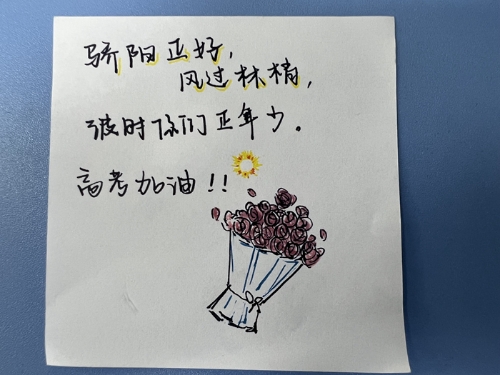 骄阳正好，
风过林梢，
彼时你们正年少。
高考加油！！